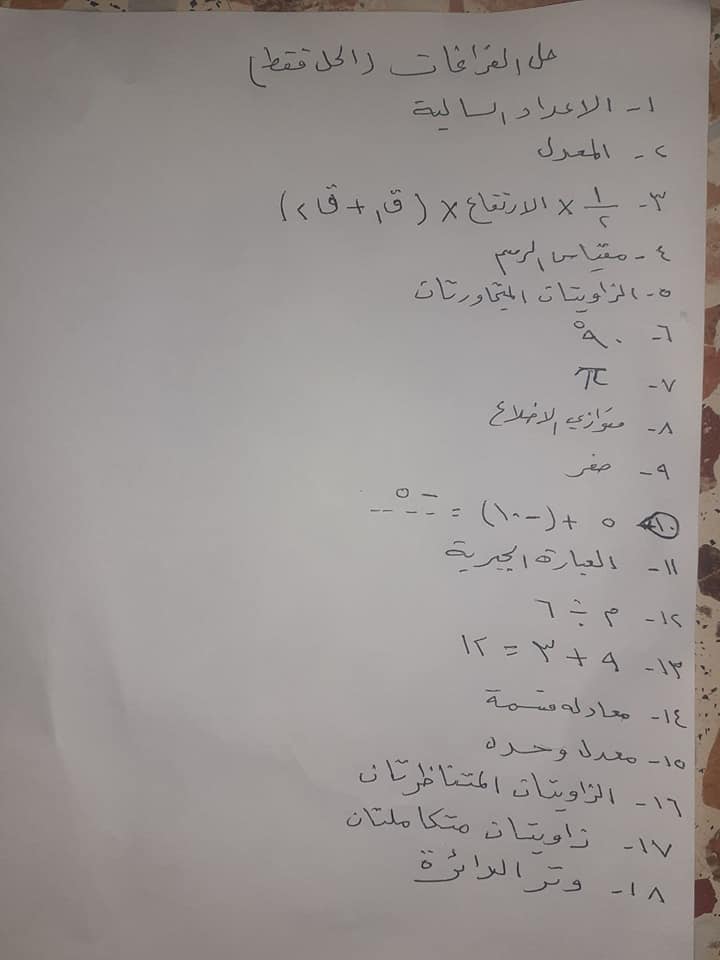 حل الفراغات (الحل فقط)
١- الاعداد السالبة
٢- المعدل
٣- ١/٢ × الارتفاع × (ق١ + ق٢)
٤- مقياس الرسم
٥- الزاويتان المتجاورتان
٦- ٩٠°
٧- π
٨- متوازي الاضلاع
٩- صفر
١٠- ٥ + (-١٠) = -٥
١١- العبارة الجبرية
١٢- م ÷ ٦
١٣- ٩ + ٣ = ١٢
١٤- معادله قسمة
١٥- معدل وحده
١٦- الزاويتان المتناظرتان
١٧- زاويتان متكاملتان
١٨- وتر الدائرة